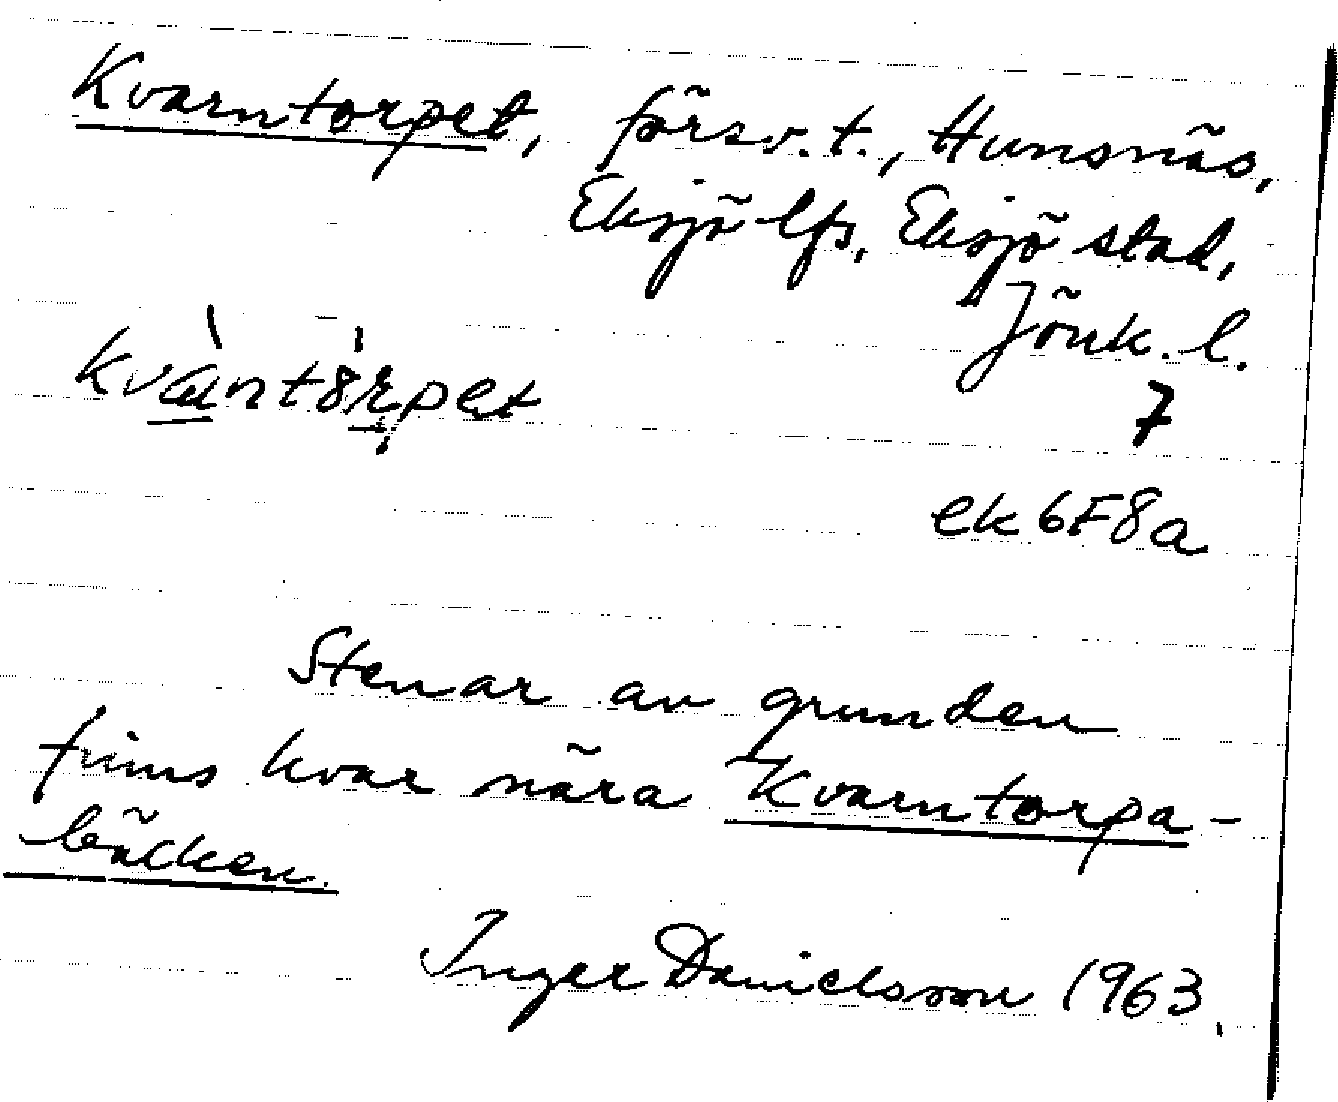 Kvarntorpet, försv. t., Hunsnäs,
Eksjö lfs, Eksjö stad,
Jönk. l.
7
ek 6F8a
Stenar av grunden
finns kvar nära Kvarntorpa-
bäcken.
Inger Danielsson 1963.